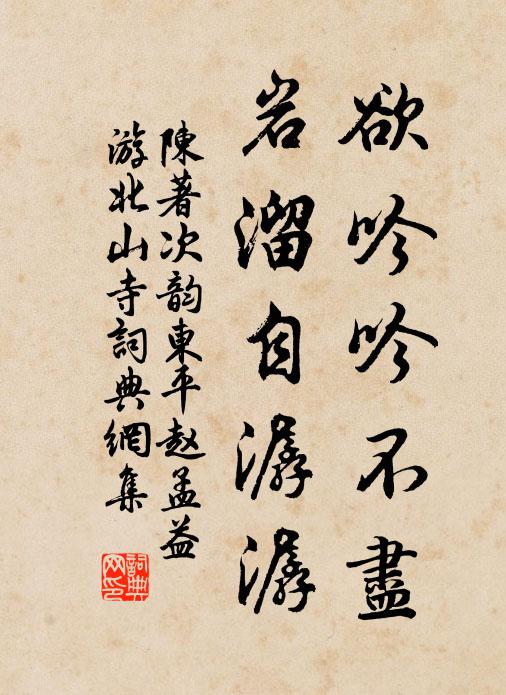 欲吟吟不盡
岩溜自潺潺
陳著次韵東平赵孟益
游北山寺詞典網集
詞典网印